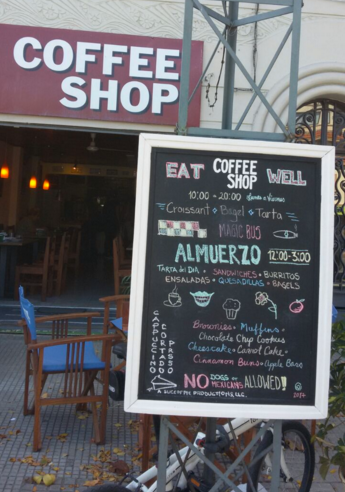 COFFEE
SHOP
EAT COFFEE SHOP WELL
10:00 - 20:00
Croissant Bagel Tarta
MAGIC BUS
ALMUERZO 12:00-3:00
TARTA del DIA SANDWICHES BURRITOS
ENSALADAS QUESADILLAS BAGELS
CAPPUCCINO
CORTADO
Brownies Muffins
Chocolate Chip Cookies
Cheesecake Carrot Cake
Cinnamon Buns Apple Bars
NO DOGS or MEXICANS ALLOWED!!